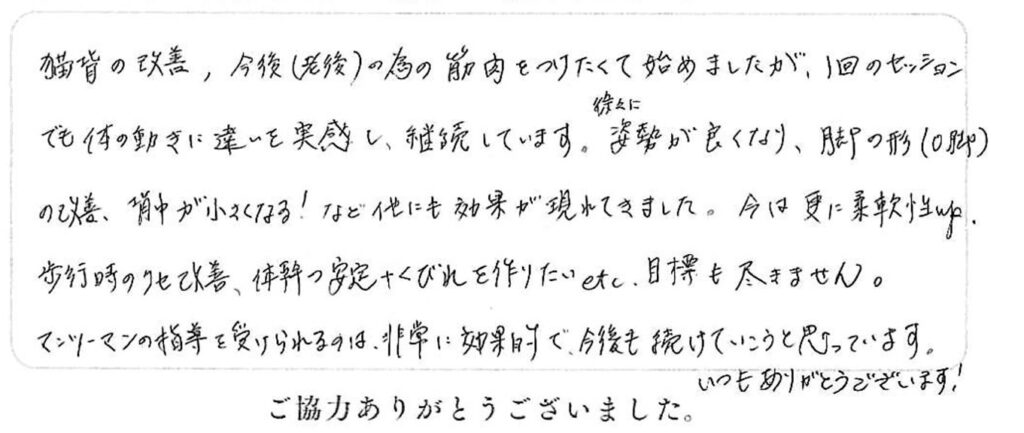 猫背の改善，今後(老後)の為の筋肉をつけたくて始めましたが、1回のセッション
でも体の動きに違いを実感し、継続しています。徐々に姿勢が良くなり、脚の形(O脚)
の改善、背中が小さくなる！など他にも効果が現れてきました。今は更に柔軟性up、
歩行時のクセ改善、体幹の安定+くびれを作りたいetc、目標も尽きません。
マンツーマンの指導を受けられるのは、非常に効果的で、今後も続けていこうと思っています。
いつもありがとうございます！
ご協力ありがとうございました。